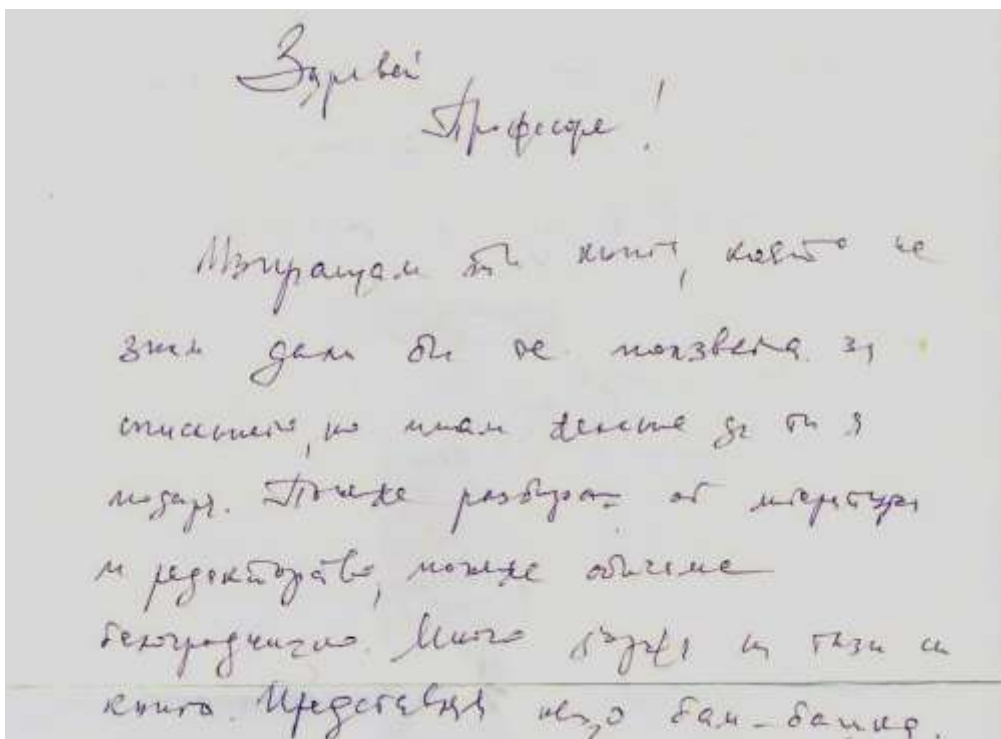 Здравей
Професоре!
Изпращам ти книга, която не
зная дали би се ползвала за
списанието, но имам желание да ти я
подаря. Понеже разбираш от литература
и редакторство, понеже обичаме
белоградчишко. Много държа на тази си
книга. Представя нещо бам-башка.